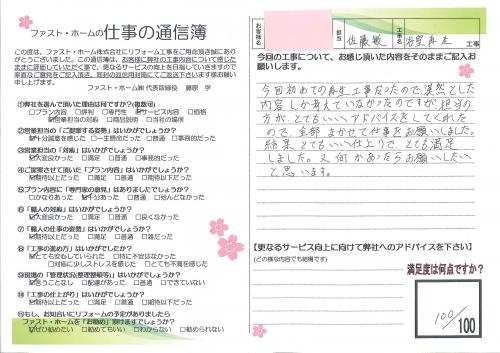 ファスト・ホームの仕事の通信簿
この度は、ファスト・ホーム株式会社にリフォーム工事をご用命頂き誠にあり
がとうございました。この通信簿は、お客様に弊社の工事内容について感じた
ままに評価していただく事で、更なるサービスの向上を目指していきますので
率直なご意見をご記入頂き、同封の返信用封筒にてご返送下さいます様お願い
申し上げます。
ファスト・ホーム㈱ 代表取締役 藤原 学
①弊社を選んで頂いた理由は何ですか?(複数可)
□プラン内容 □評判 □専門性 ☑サービス内容 □価格
☑営業担当の対応 □商品説明 □当社の場所
②営業担当の「ご提案する姿勢」はいかがでしょうか?
☑十分誠意を感じた □一生懸命だった □普通 □事務的だった
③営業担当の「対応」はいかがでしょうか?
☑大変良かった □満足 □普通 □事務的だった
④ご提案させて頂いた「プラン内容」はいかがでしょうか?
☑期待以上だった □満足 □普通 □期待以下だった
⑤プラン内容に「専門家の意見」はありましたでしょうか?
□かなりあった ☑十分あった □普通 □殆んどなかった
⑥「職人の対応」はいかがでしょうか?
☑大変良かった □満足 □普通 □良くなかった
⑦「職人の仕事の姿勢」はいかがでしょうか?
☑期待以上だった □満足 □普通 □雑だった
⑧「工事の進め方」はいかがでしょうか?
☑とても安心していられた □特に不安はなかった
□対応に少しストレスを感じた □とても不満を感じた
⑨現場の「管理状況(整理整頓等)」はいかがでしょうか?
☑言うことなし □配慮があった □普通 □できていない
⑩「工事の仕上がり」はいかがでしょうか?
☑期待以上だった □満足 □普通 □期待以下だった
⑪もし、お知合いにリフォームの予定がありましたら
ファスト・ホームを「お勧め」頂けますでしょうか
☑ぜひ勧めたい □勧めてもいい □わからない □勧められない
お客様名
担当 佐藤 敏
工事名 浴室再生 工事
今回の工事について、お感じ頂いた内容をそのままご記入お
願いします。
今回初めての再生工事だったので漠然とした
内容しか考えていなかったのですが、担当の
方が、とてもいいアドバイスをしてくれた
ので、全部まかせて仕事をお願いしました。
結果とてもいい仕上りで、とても満足
しました。又、何かあったらお願いしたい
と思います。
【更なるサービス向上に向けて弊社へのアドバイスを下さい】
(どの様な内容でも結構です)
満足度は何点ですか?
100/100